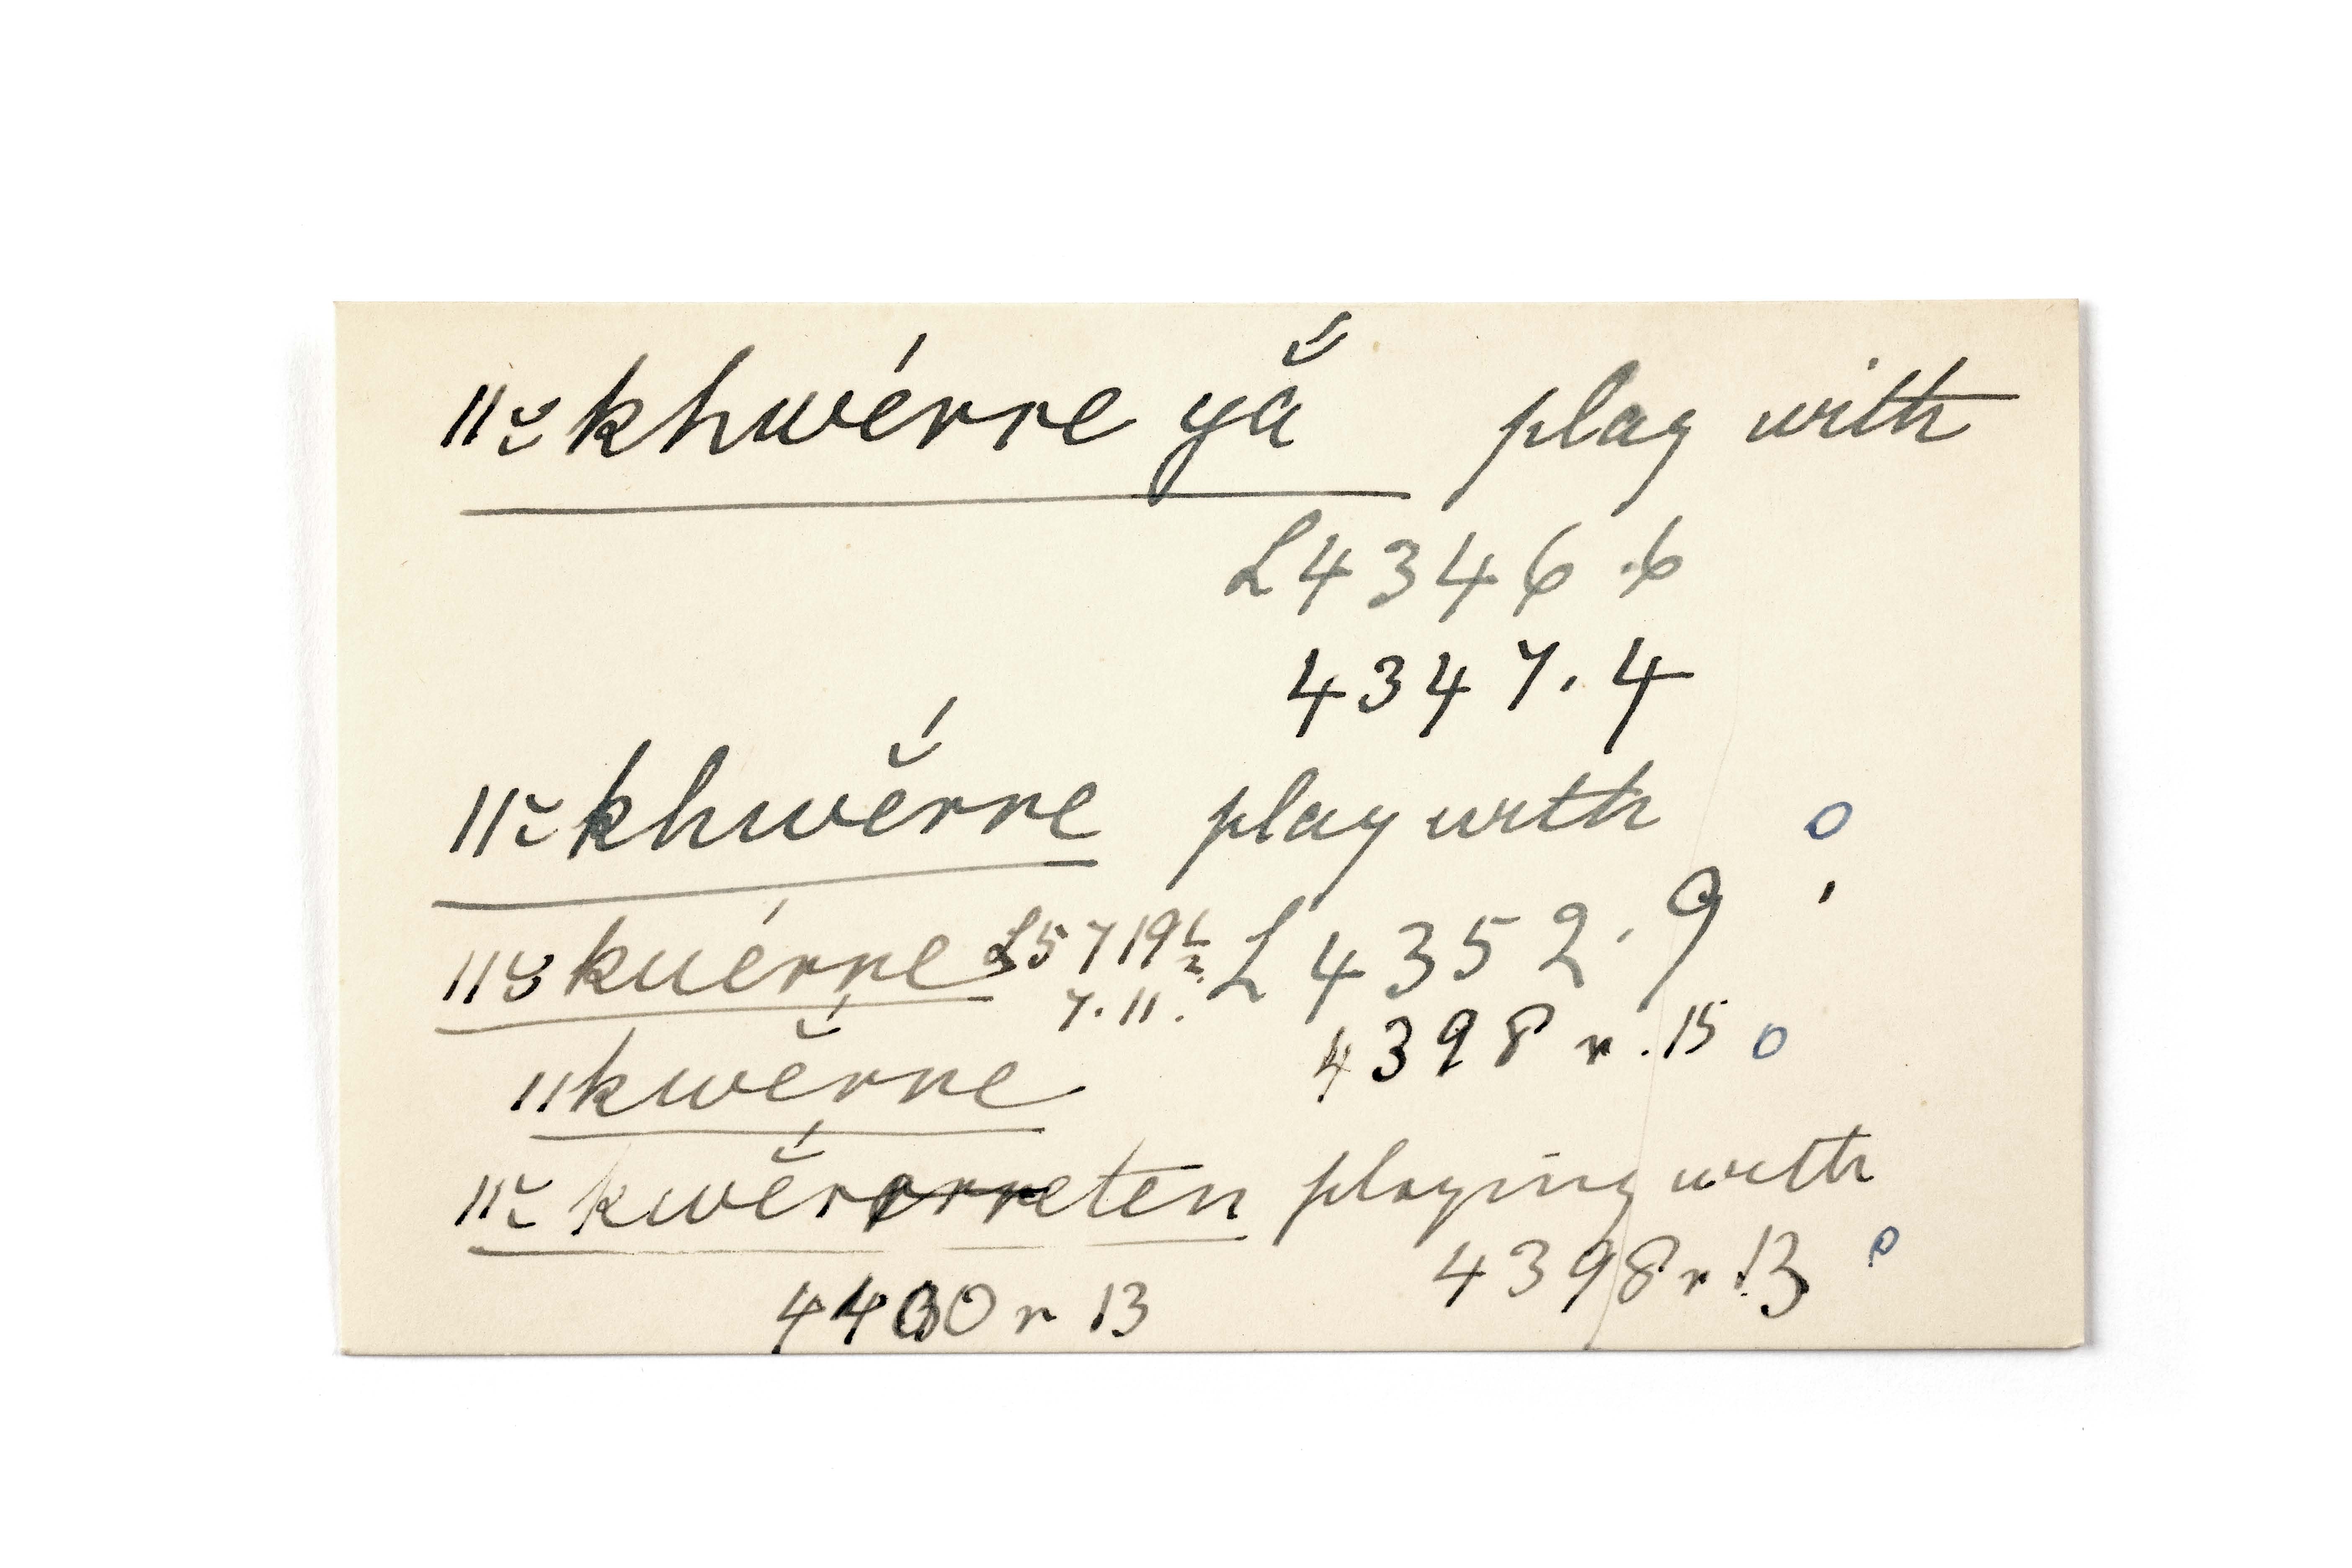 ǁ˘khwérre yā̆́ play with
L4346.6
4347.4
ǁ˘khwĕ́rre play with o
ǁ˘kuérre L5719½ L4352.9
7.11. 4398 r.15 o
ǁkwĕ́rre
ǁ˘kwĕ́rreten playing with
4398 r 13 o
r 13